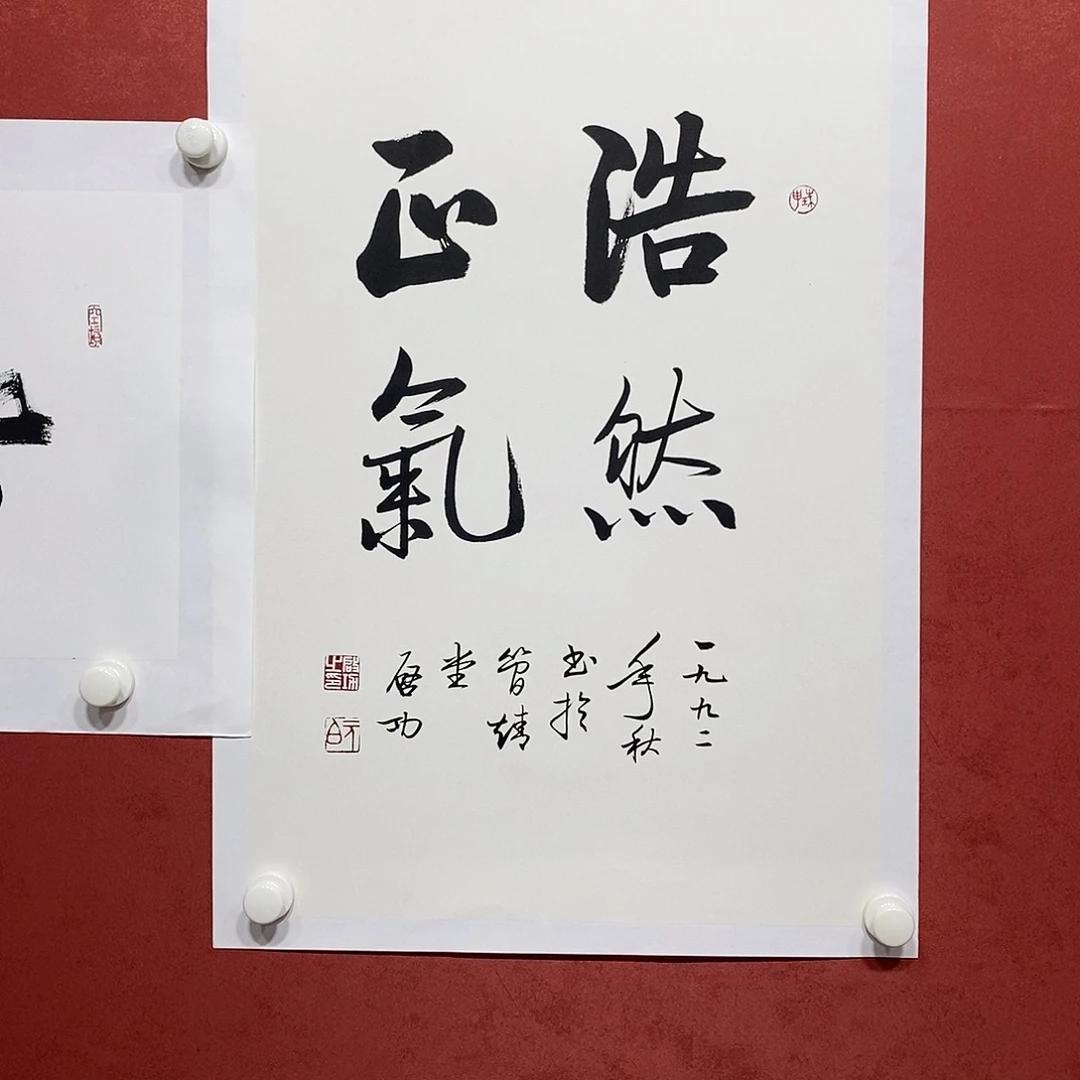 浩然
正氣
一九九二
年秋
書於
簡靖
堂
啟功